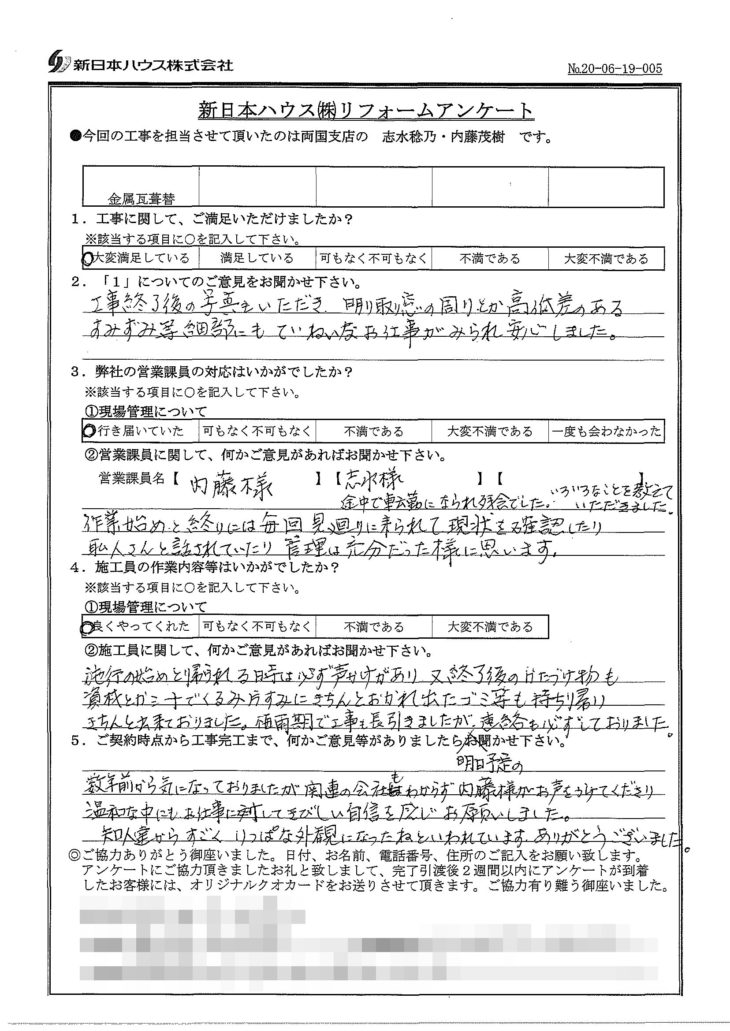 新日本ハウス株式会社
No.20-06-19-005
新日本ハウス㈱リフォームアンケート
●今回の工事を担当させて頂いたのは両国支店の 志水稔乃・内藤茂樹 です。
金属瓦葺替
1．工事に関して、ご満足いただけましたか？
※該当する項目に○を記入して下さい。
大変満足している 満足している 可もなく不可もなく 不満である 大変不満である
2．「1」についてのご意見をお聞かせ下さい。
工事終了後の写真もいただき、明り取り窓の周りとか高低差のある
すみずみ等細部にもていねいなお仕事がみられ安心しました。
3．弊社の営業課員の対応はいかがでしたか？
※該当する項目に○を記入して下さい。
①現場管理について
行き届いていた 可もなく不可もなく 不満である 大変不満である 一度も会わなかった
②営業課員に関して、何かご意見があればお聞かせ下さい。
営業課員名【 内藤様 】【 志水様 】【 】
途中で転勤になられ残念でした。いろいろなことを教えて
いただきました。
作業始めと終りには毎回見廻りに来られて現状を確認したり
職人さんと話されていたり管理は充分だった様に思います。
4．施工員の作業内容等はいかがでしたか？
※該当する項目に○を記入して下さい。
①現場管理について
良くやってくれた 可もなく不可もなく 不満である 大変不満である
②施工員に関して、何かご意見があればお聞かせ下さい。
施行の始めと帰られる時は必ず声かけがあり 又終了後のかたづけ物も
資材とかシートでくるみ片すみにきちんとおかれ出たゴミ等も持ち帰り
きちんと出来ておりました。梅雨期で工事も長引きましたが、連絡も必ずしておりました。
5．ご契約時点から工事完工まで、何かご意見等がありましたらお聞かせ下さい。
明日予定の
数年前から気になっておりましたが関連の会社もわからず内藤様がお声をかけてくださり
温和な中にもお仕事に対してきびしい自信を感じお願いしました。
知人達からすごくりっぱな外観になったねといわれています。ありがとうございました。
◎ご協力ありがとう御座いました。日付、お名前、電話番号、住所のご記入をお願い致します。
アンケートにご協力頂きましたお礼と致しまして、完了引渡後2週間以内にアンケートが到着
したお客様には、オリジナルクオカードをお送りさせて頂きます。ご協力有り難う御座いました。